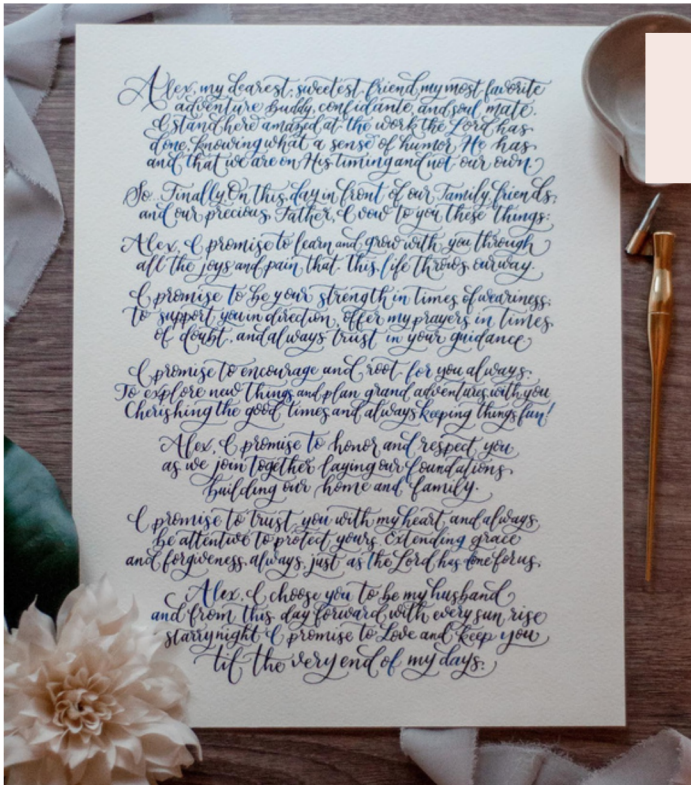 Alex, my dearest, sweetest friend, my most favorite
adventure buddy, confidante, and soul mate.
I stand here amazed at the work the Lord has
done, knowing what a sense of humor He has
and that we are on His timing and not our own
So. Finally, On this day in front of our Family, friends,
and our precious, Father, I vow to you these things:
Alex, I promise to learn and grow with you through
all the joys and pain that this life throws our way.
I promise to be your strength in times of weariness.
to support you in direction, offer my prayers in times
of doubt, and always trust in your guidance
I promise to encourage and root for you always.
To explore new things and plan grand adventures with you
Cherishing the good times and always keeping things fun!
Alex, I promise to honor and respect you
as we join together laying our foundations
building our home and family.
I promise to trust you with my heart, and always,
be attentive to protect yours. Extending grace
and forgiveness, always, just as the Lord has done for us.
Alex, I choose you to be my husband
and from this day forward with every sun rise
starry night I promise to Love and keep you
til the very end of my days.